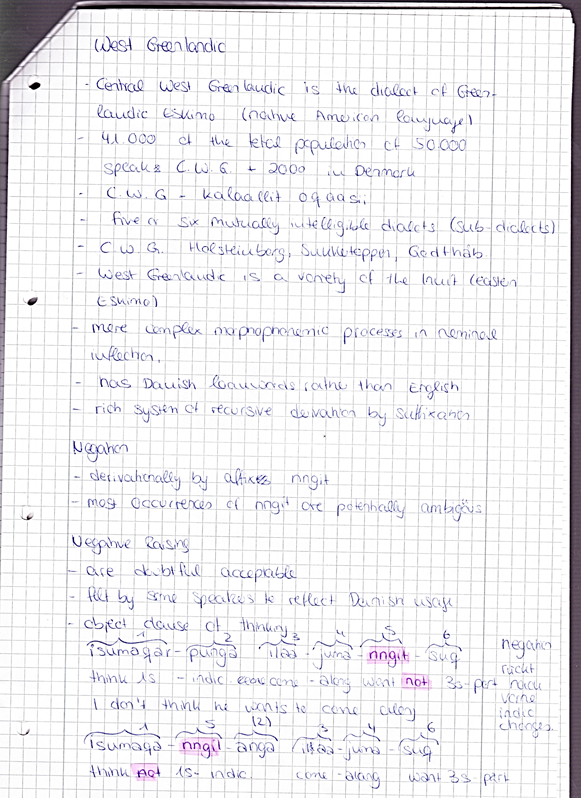 West Greenlandic
- Central West Greenlandic is the dialect of Green-
landic Eskimo (native American language)
- 41.000 of the total population of 50.000
speaks C.W.G. + 2000 in Denmark
- C.W.G - kalaallit oqaasi,
- five or six mutually intelligible dialects (sub-dialects)
- C.W.G. Holsteinborg, Sukkertoppen, Godthåb
- West Greenlandic is a variety of the Inuit (eastern
Eskimo)
- more complex morphophonemic processes in nominal
inflection.
- has Danish loanwords rather than English
- rich system of recursive derivation by suffixation
Negation
- derivationally by affixes nngit
- most occurrences of nngit are potentially
Negative Raising
- are doubtful acceptable
- felt by some speakers to reflect Danish usage
- object clause of thinking
1 2 3 4 5 6
isumaqar-punga ilaa-juma-nngit-suq
negation
rückt
think 1s-indic come-along want not 3s-part nach
vorne
I don't think he wants to come along
indic
changes.
1 5 (2) 3 4 6
isumaqa-nngil-anga ilaa-juma-suq
think not 1s-indic come-along want 3s-part